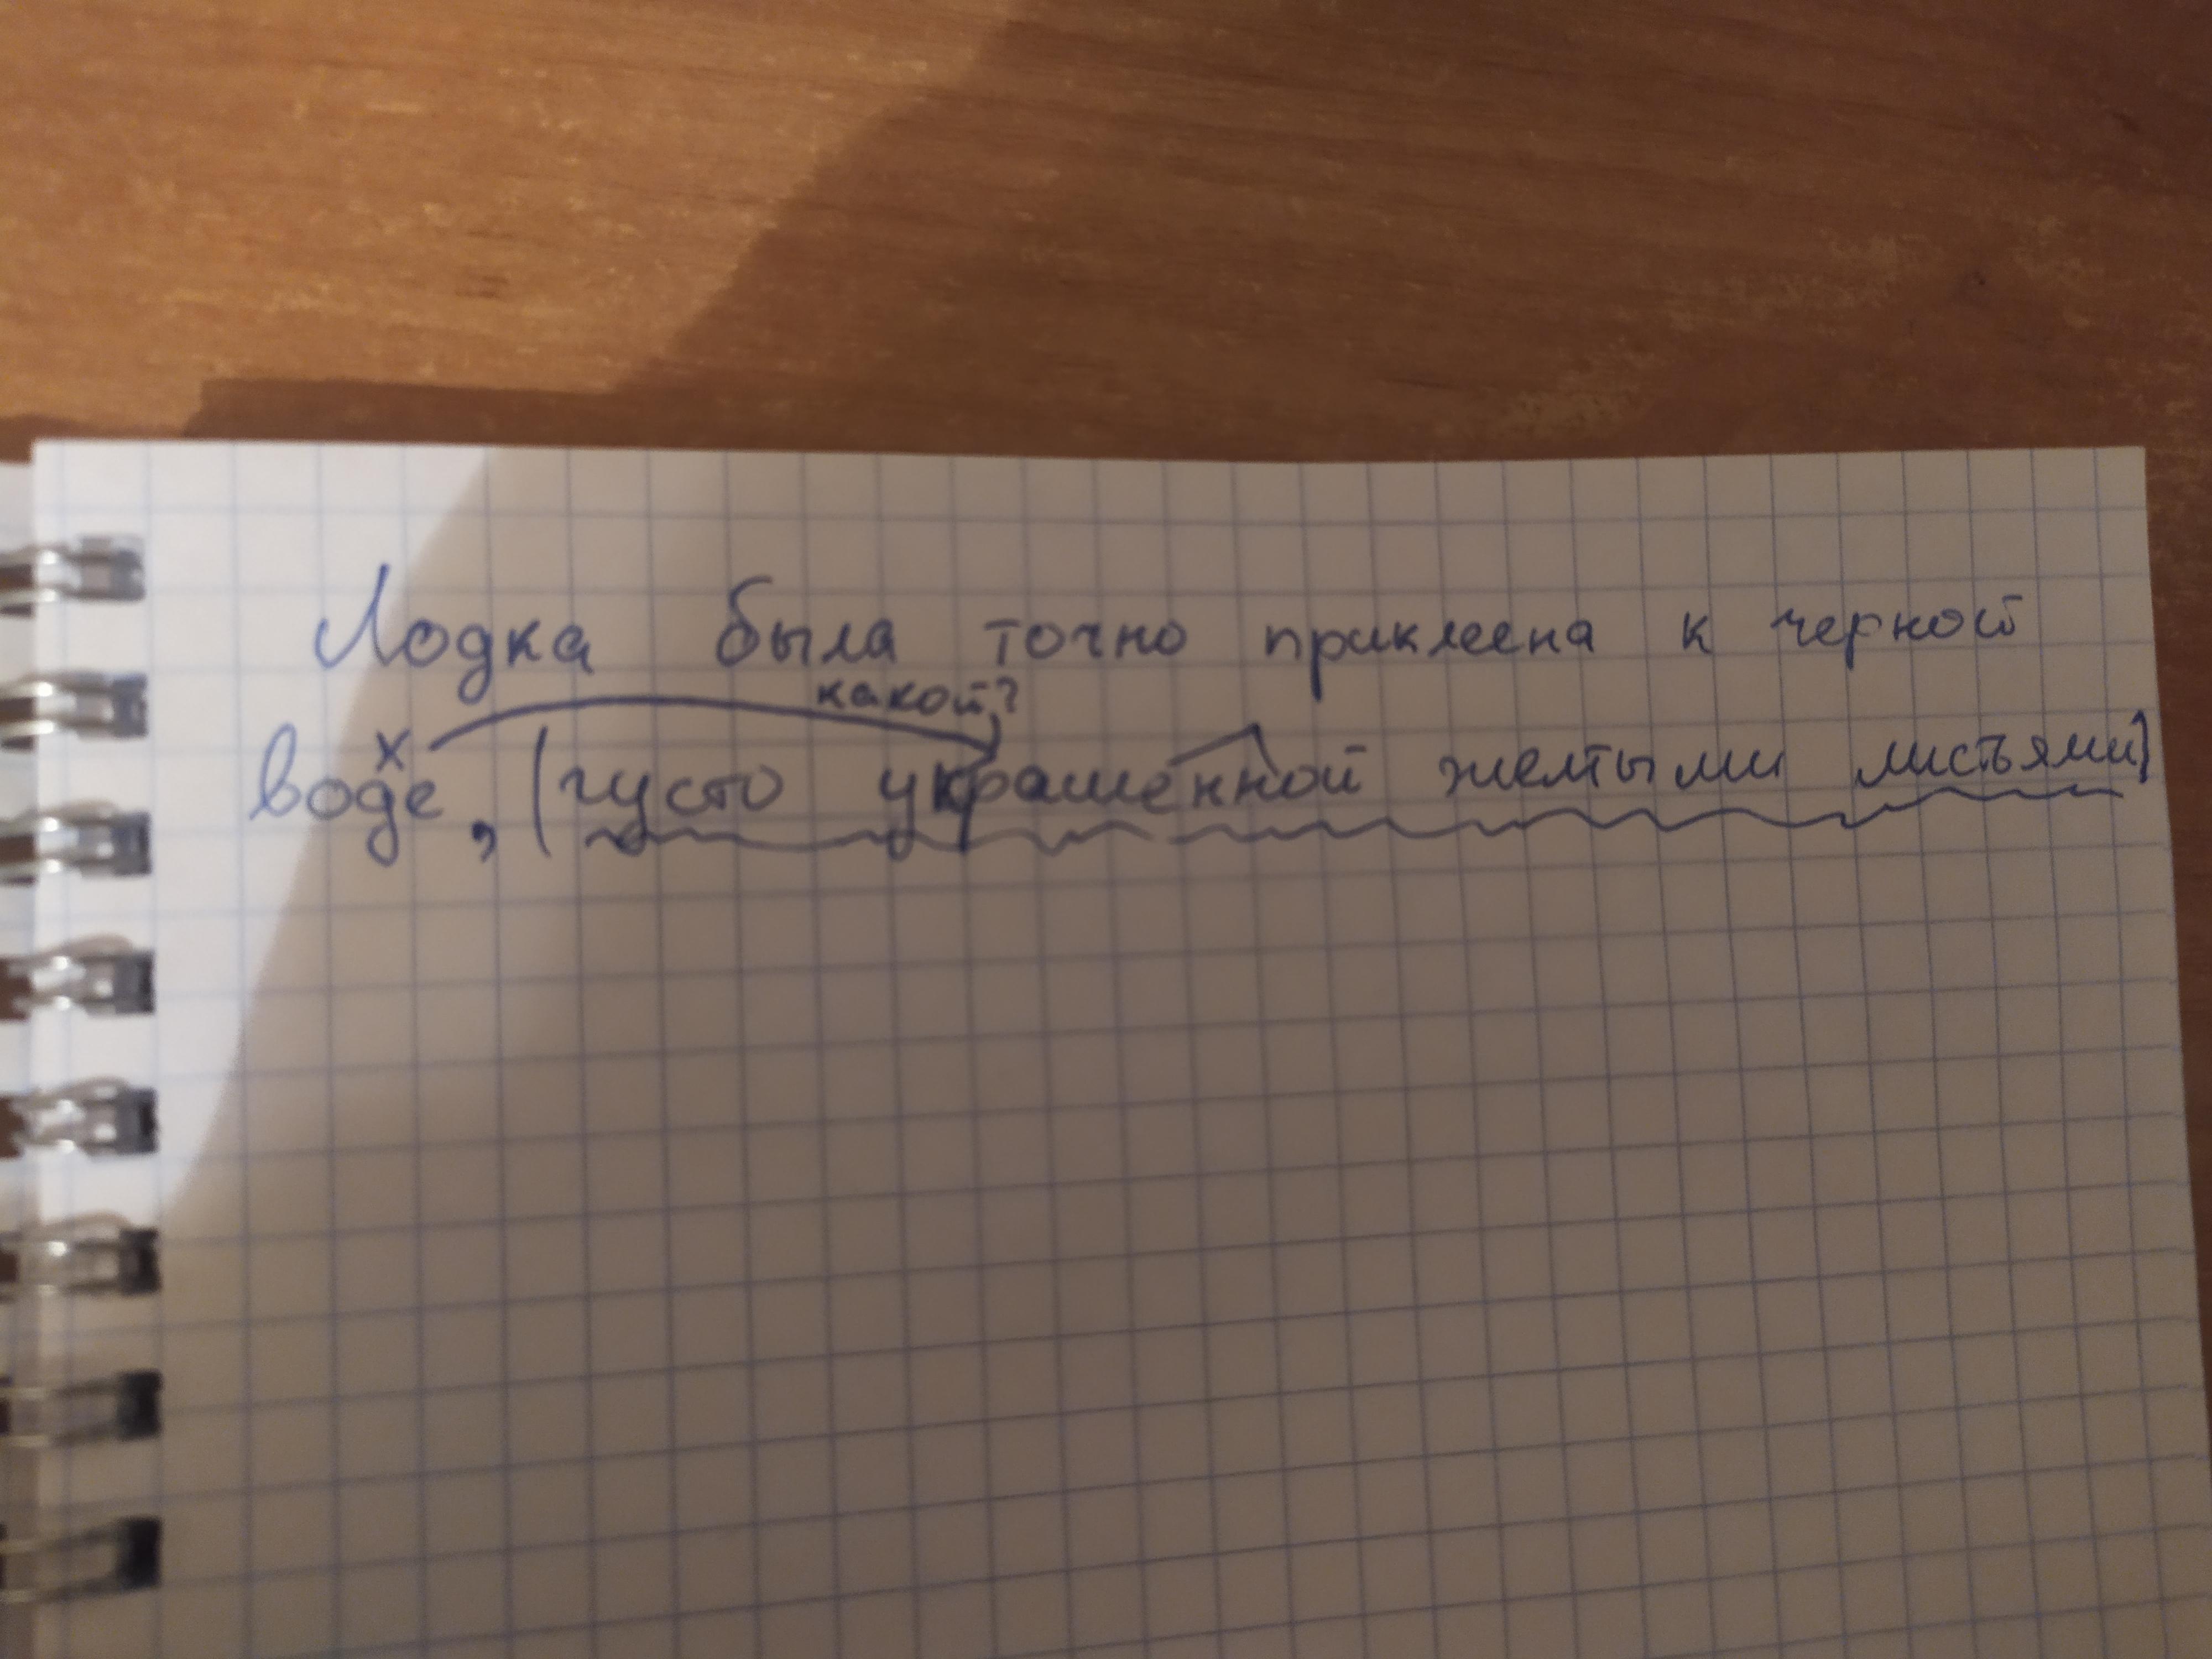 Лодка была точно приклеена к черной
какой?
х
воде, (густо украшенной желтыми листьями)